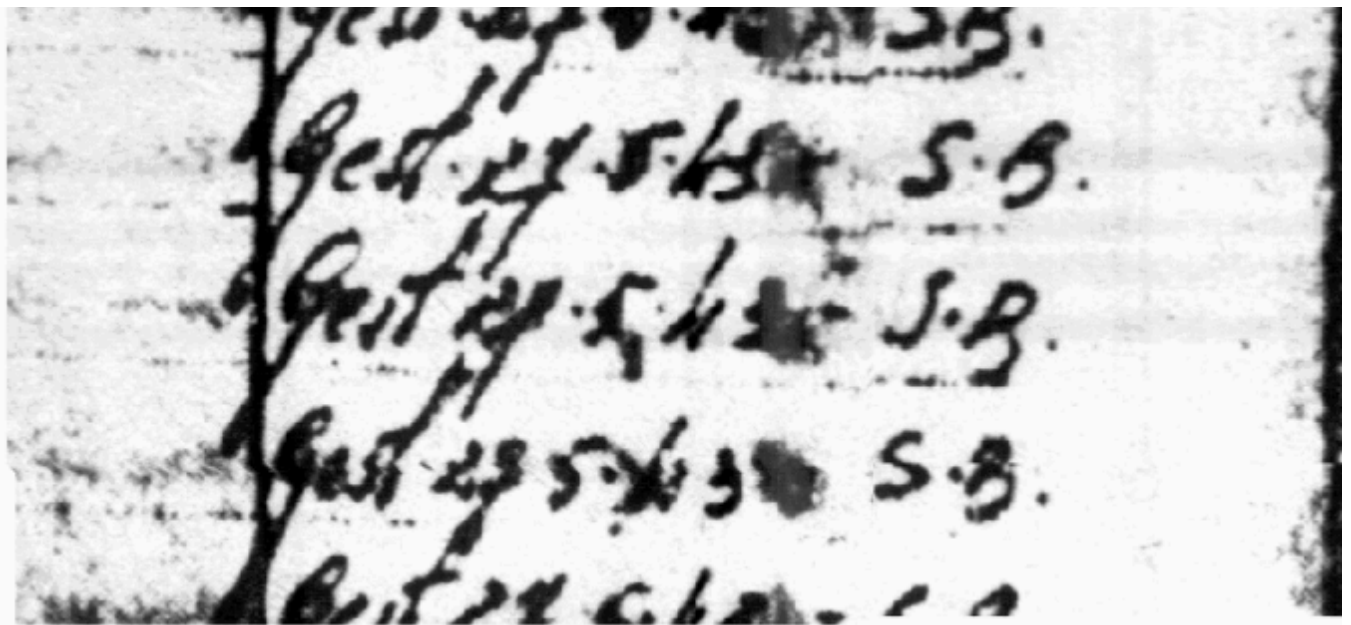 Gest. 27. 5. 43 - S. B.
Gest. 27. 5. 43 - S. B.
Gest. 27. 5. 43 - S. B.
Gest 27 5. 43 S. B.
Gest 27 5. 43 - S. B.